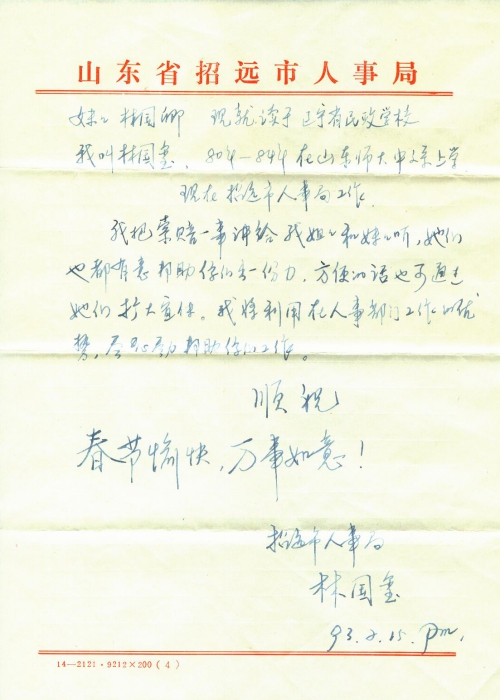 山东省招远市人事局
妹妹林国卿 现就读于辽宁省民政学校
我叫林国玺, 80年—84年在山东师大中文系上学
现在招远市人事局工作。
我把索赔一事讲给我姐姐和妹妹听,她们
也都有意帮助你们出一份力,方便的话也可通过
她们扩大宣传。我将利用在人事部门工作的优
势,尽心尽力帮助你们工作。
顺祝
春节愉快,万事如意!
招远市人事局
林国玺
93.2.15. pm.
14—2121·9212×200(4)